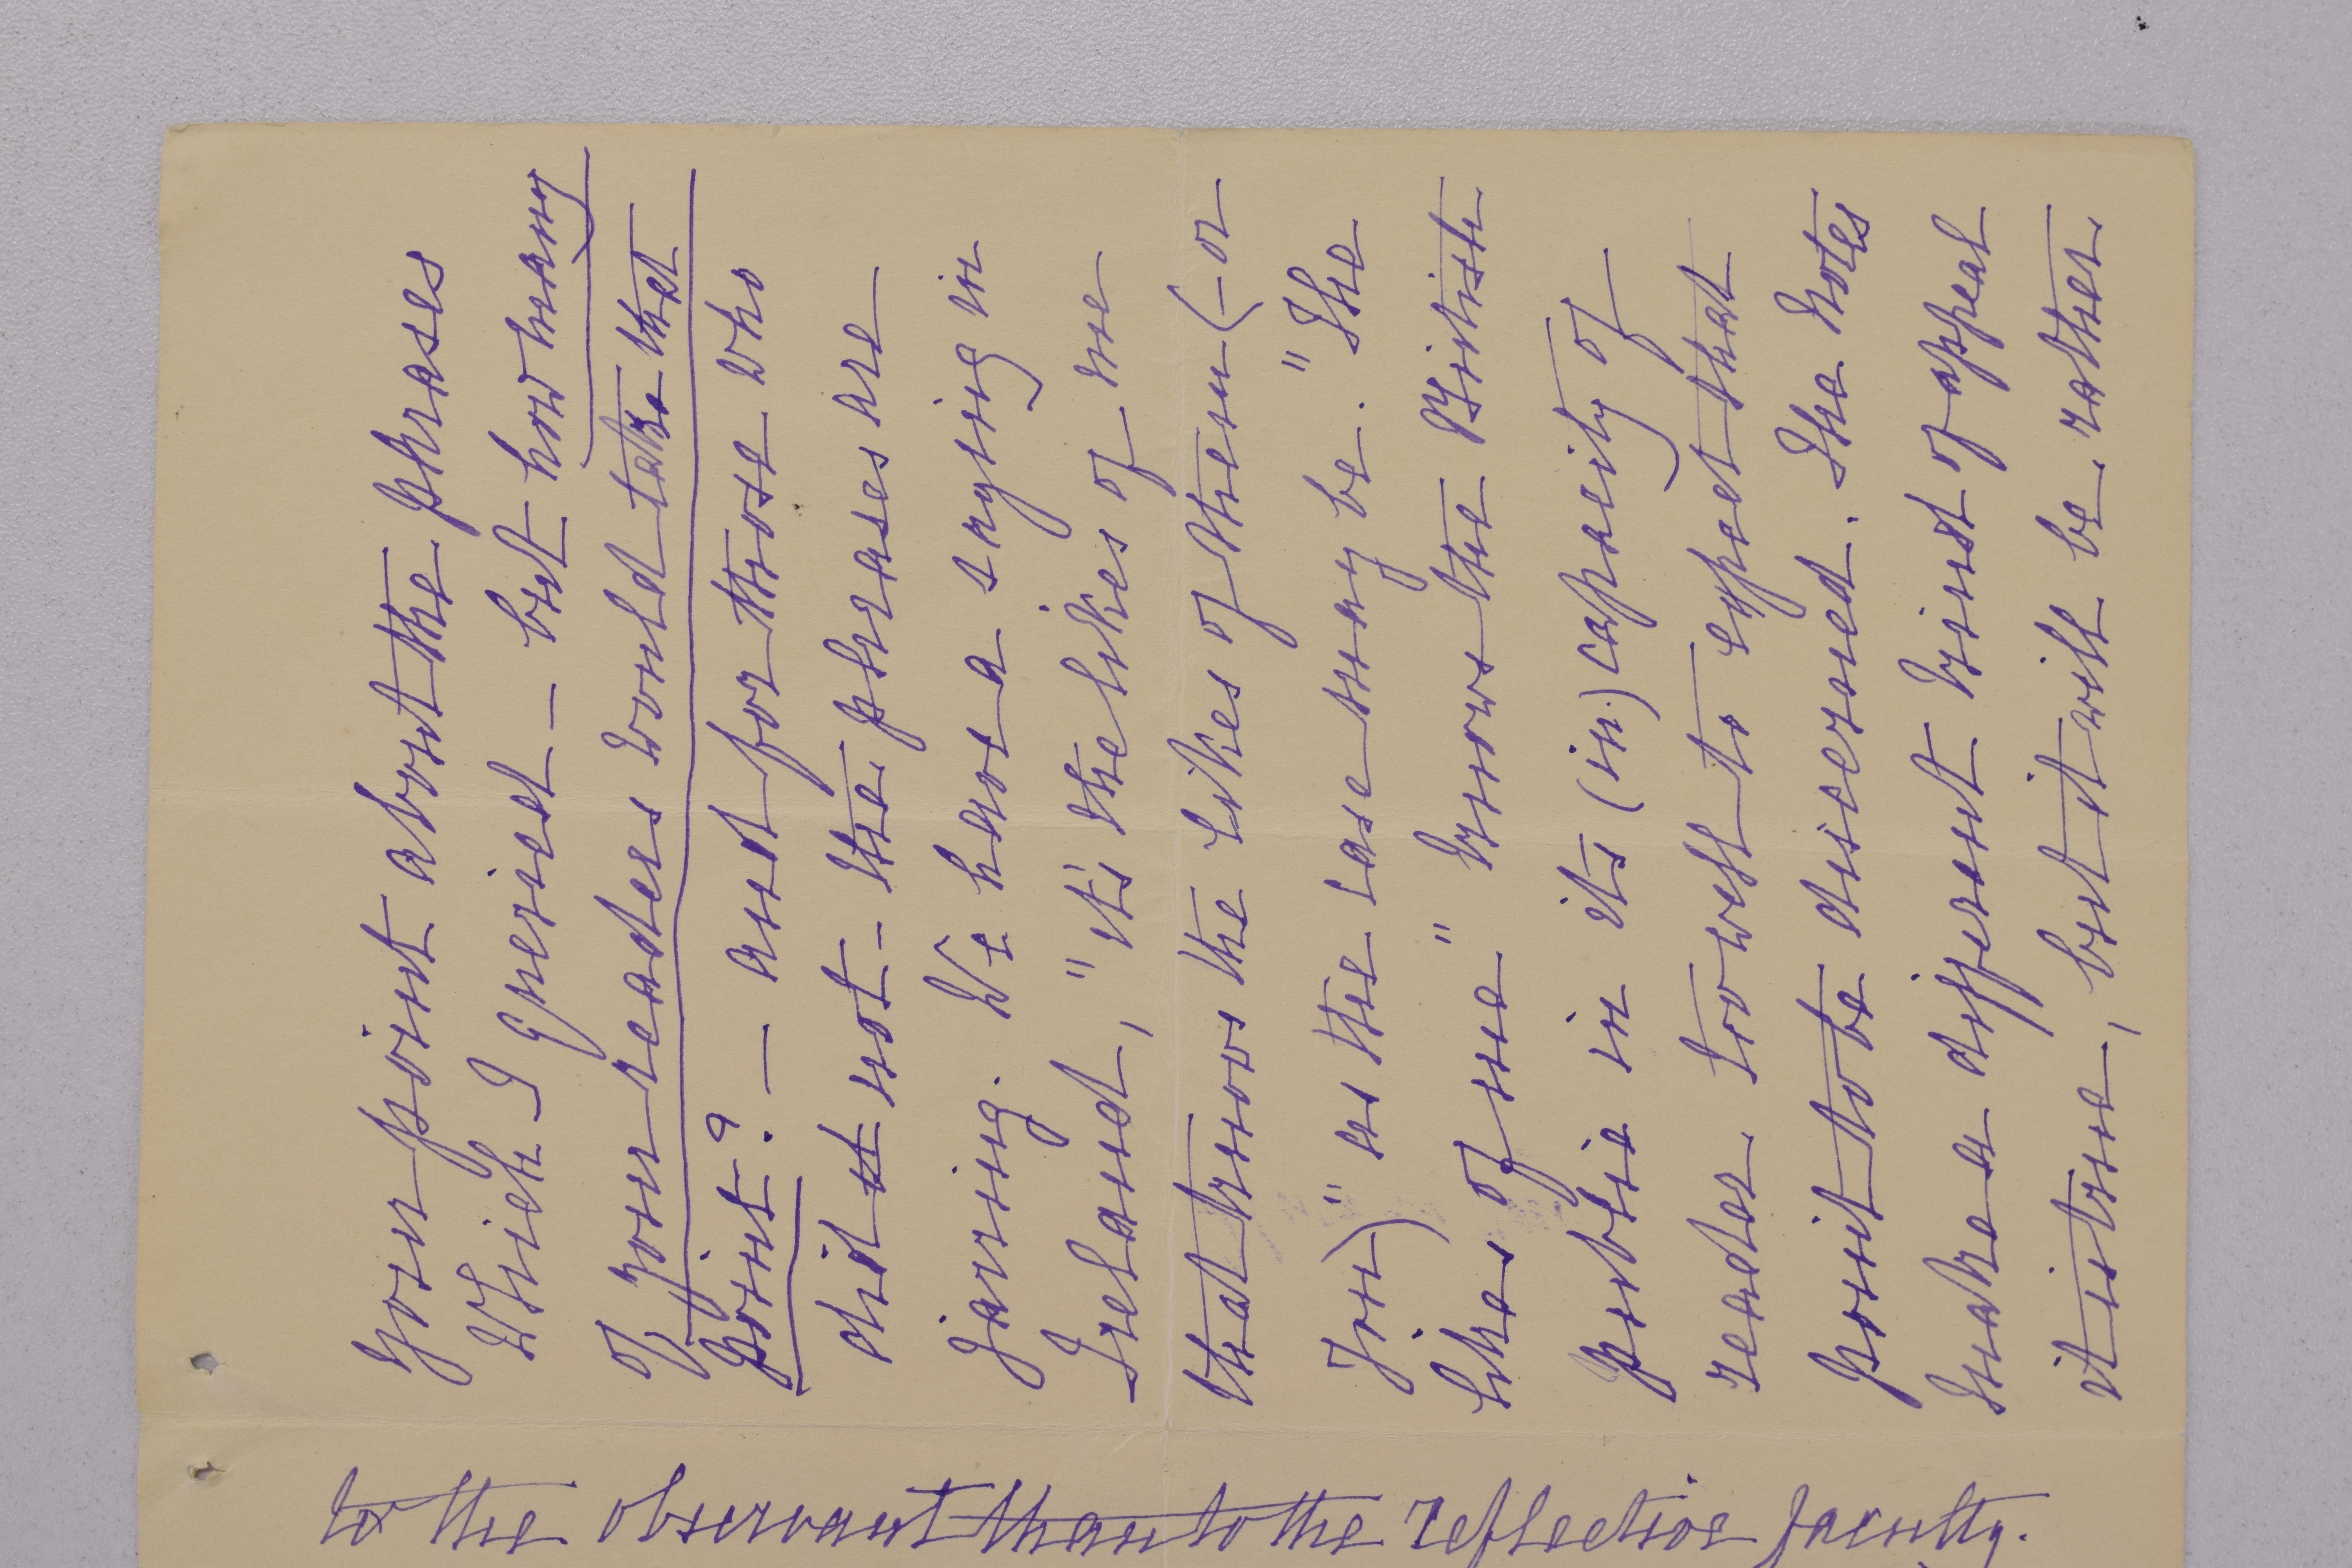 your point about the phrases
which I queried – but how many
of your readers would take that
point? – and for those who
did it not – the phrases are
jarring. We have a saying in
Ireland, "it's the likes of me
that knows the likes of them (– or
you)" as the case may be. "The
likes of me" knows the British
public in its (in) capacity of
reader too well to expect that
point to be discerned. The notes
make a different kind of appeal
it is true, but it will be rather
to the observant than to the reflective faculty.